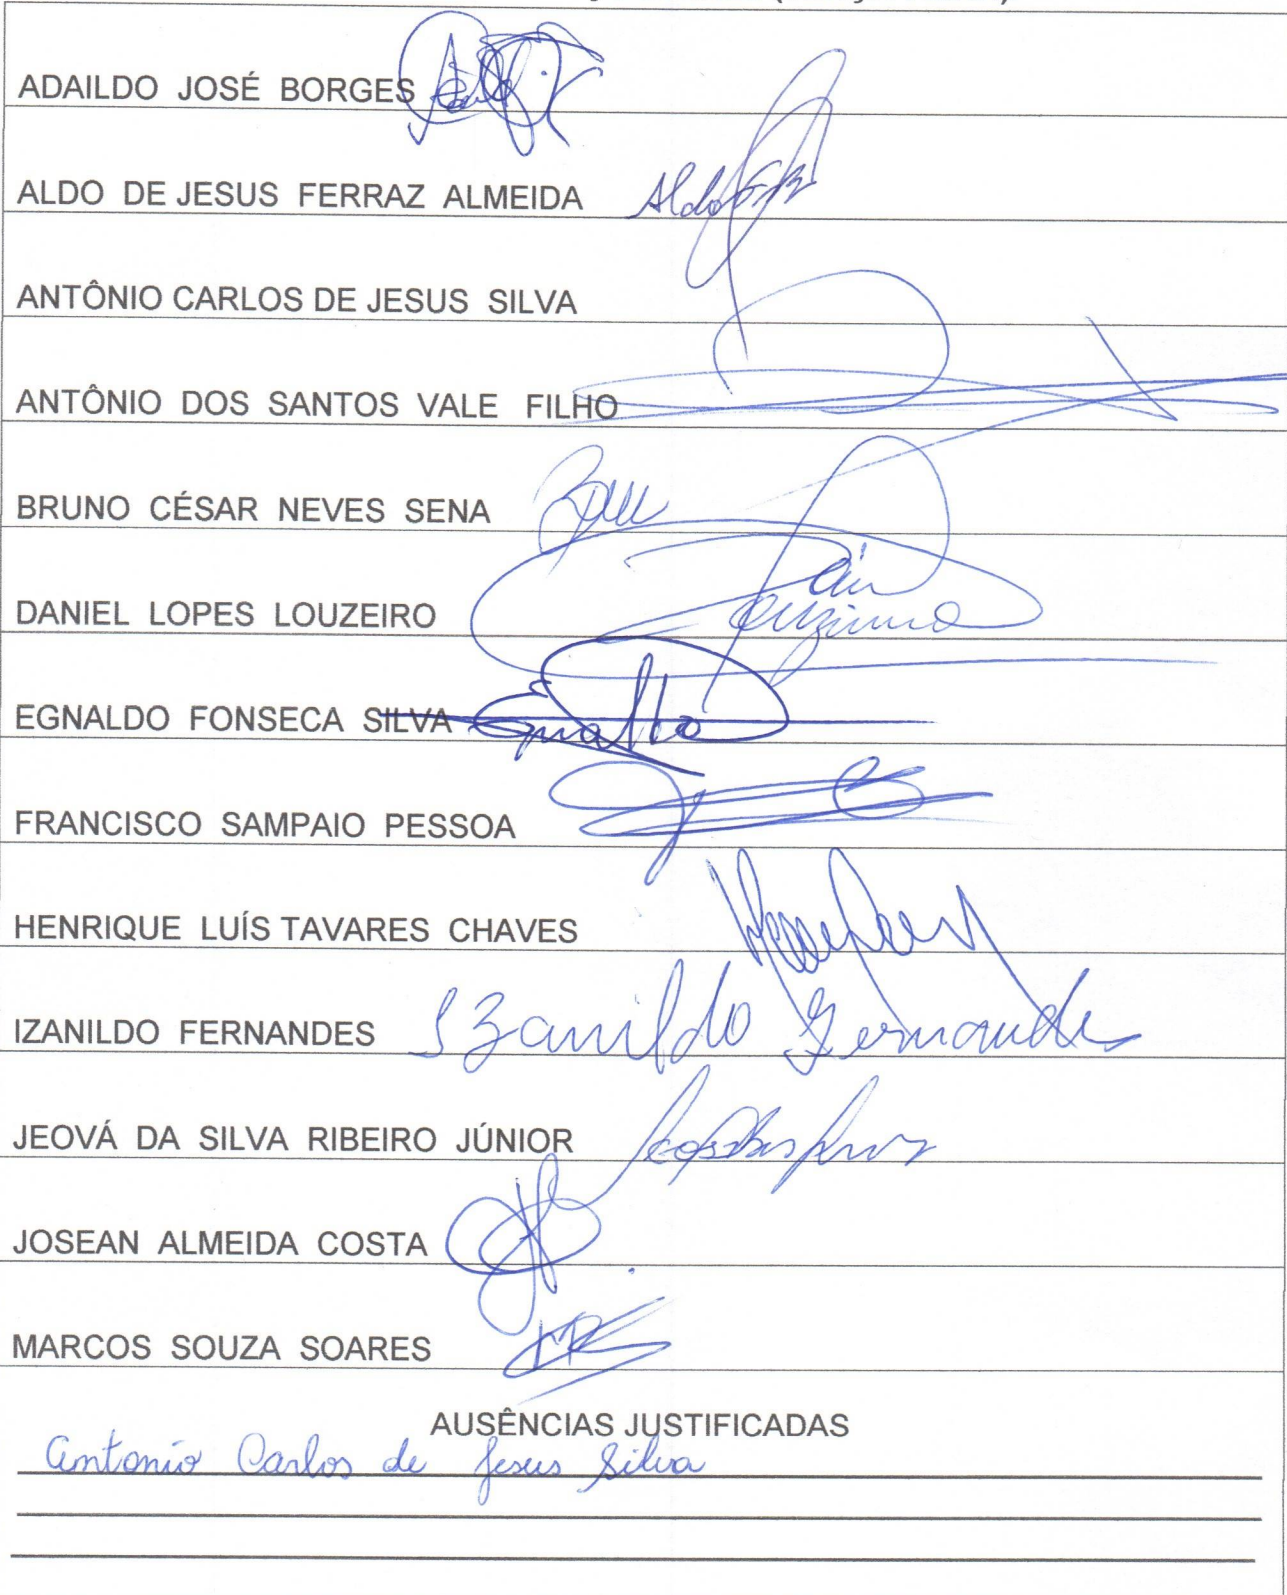 ADAILDO JOSÉ BORGES
ALDO DE JESUS FERRAZ ALMEIDA Aldo
ANTÔNIO CARLOS DE JESUS SILVA
ANTÔNIO DOS SANTOS VALE FILHO
BRUNO CÉSAR NEVES SENA
DANIEL LOPES LOUZEIRO
EGNALDO FONSECA SILVA
FRANCISCO SAMPAIO PESSOA
HENRIQUE LUÍS TAVARES CHAVES
IZANILDO FERNANDES Izanildo Fernandes
JEOVÁ DA SILVA RIBEIRO JÚNIOR
JOSEAN ALMEIDA COSTA
MARCOS SOUZA SOARES
AUSÊNCIAS JUSTIFICADAS
Antonio Carlos de Jesus Silva